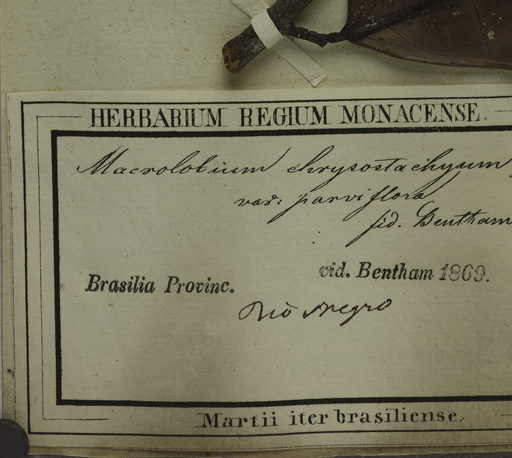 HERBARIUM REGIUM MONACENSE.
Macrolobium chrysostachyum
var: parviflora
fid. Bentham
vid. Bentham 1869.
Brasilia Provinc.
Rio Negro
Martii iter brasiliense.